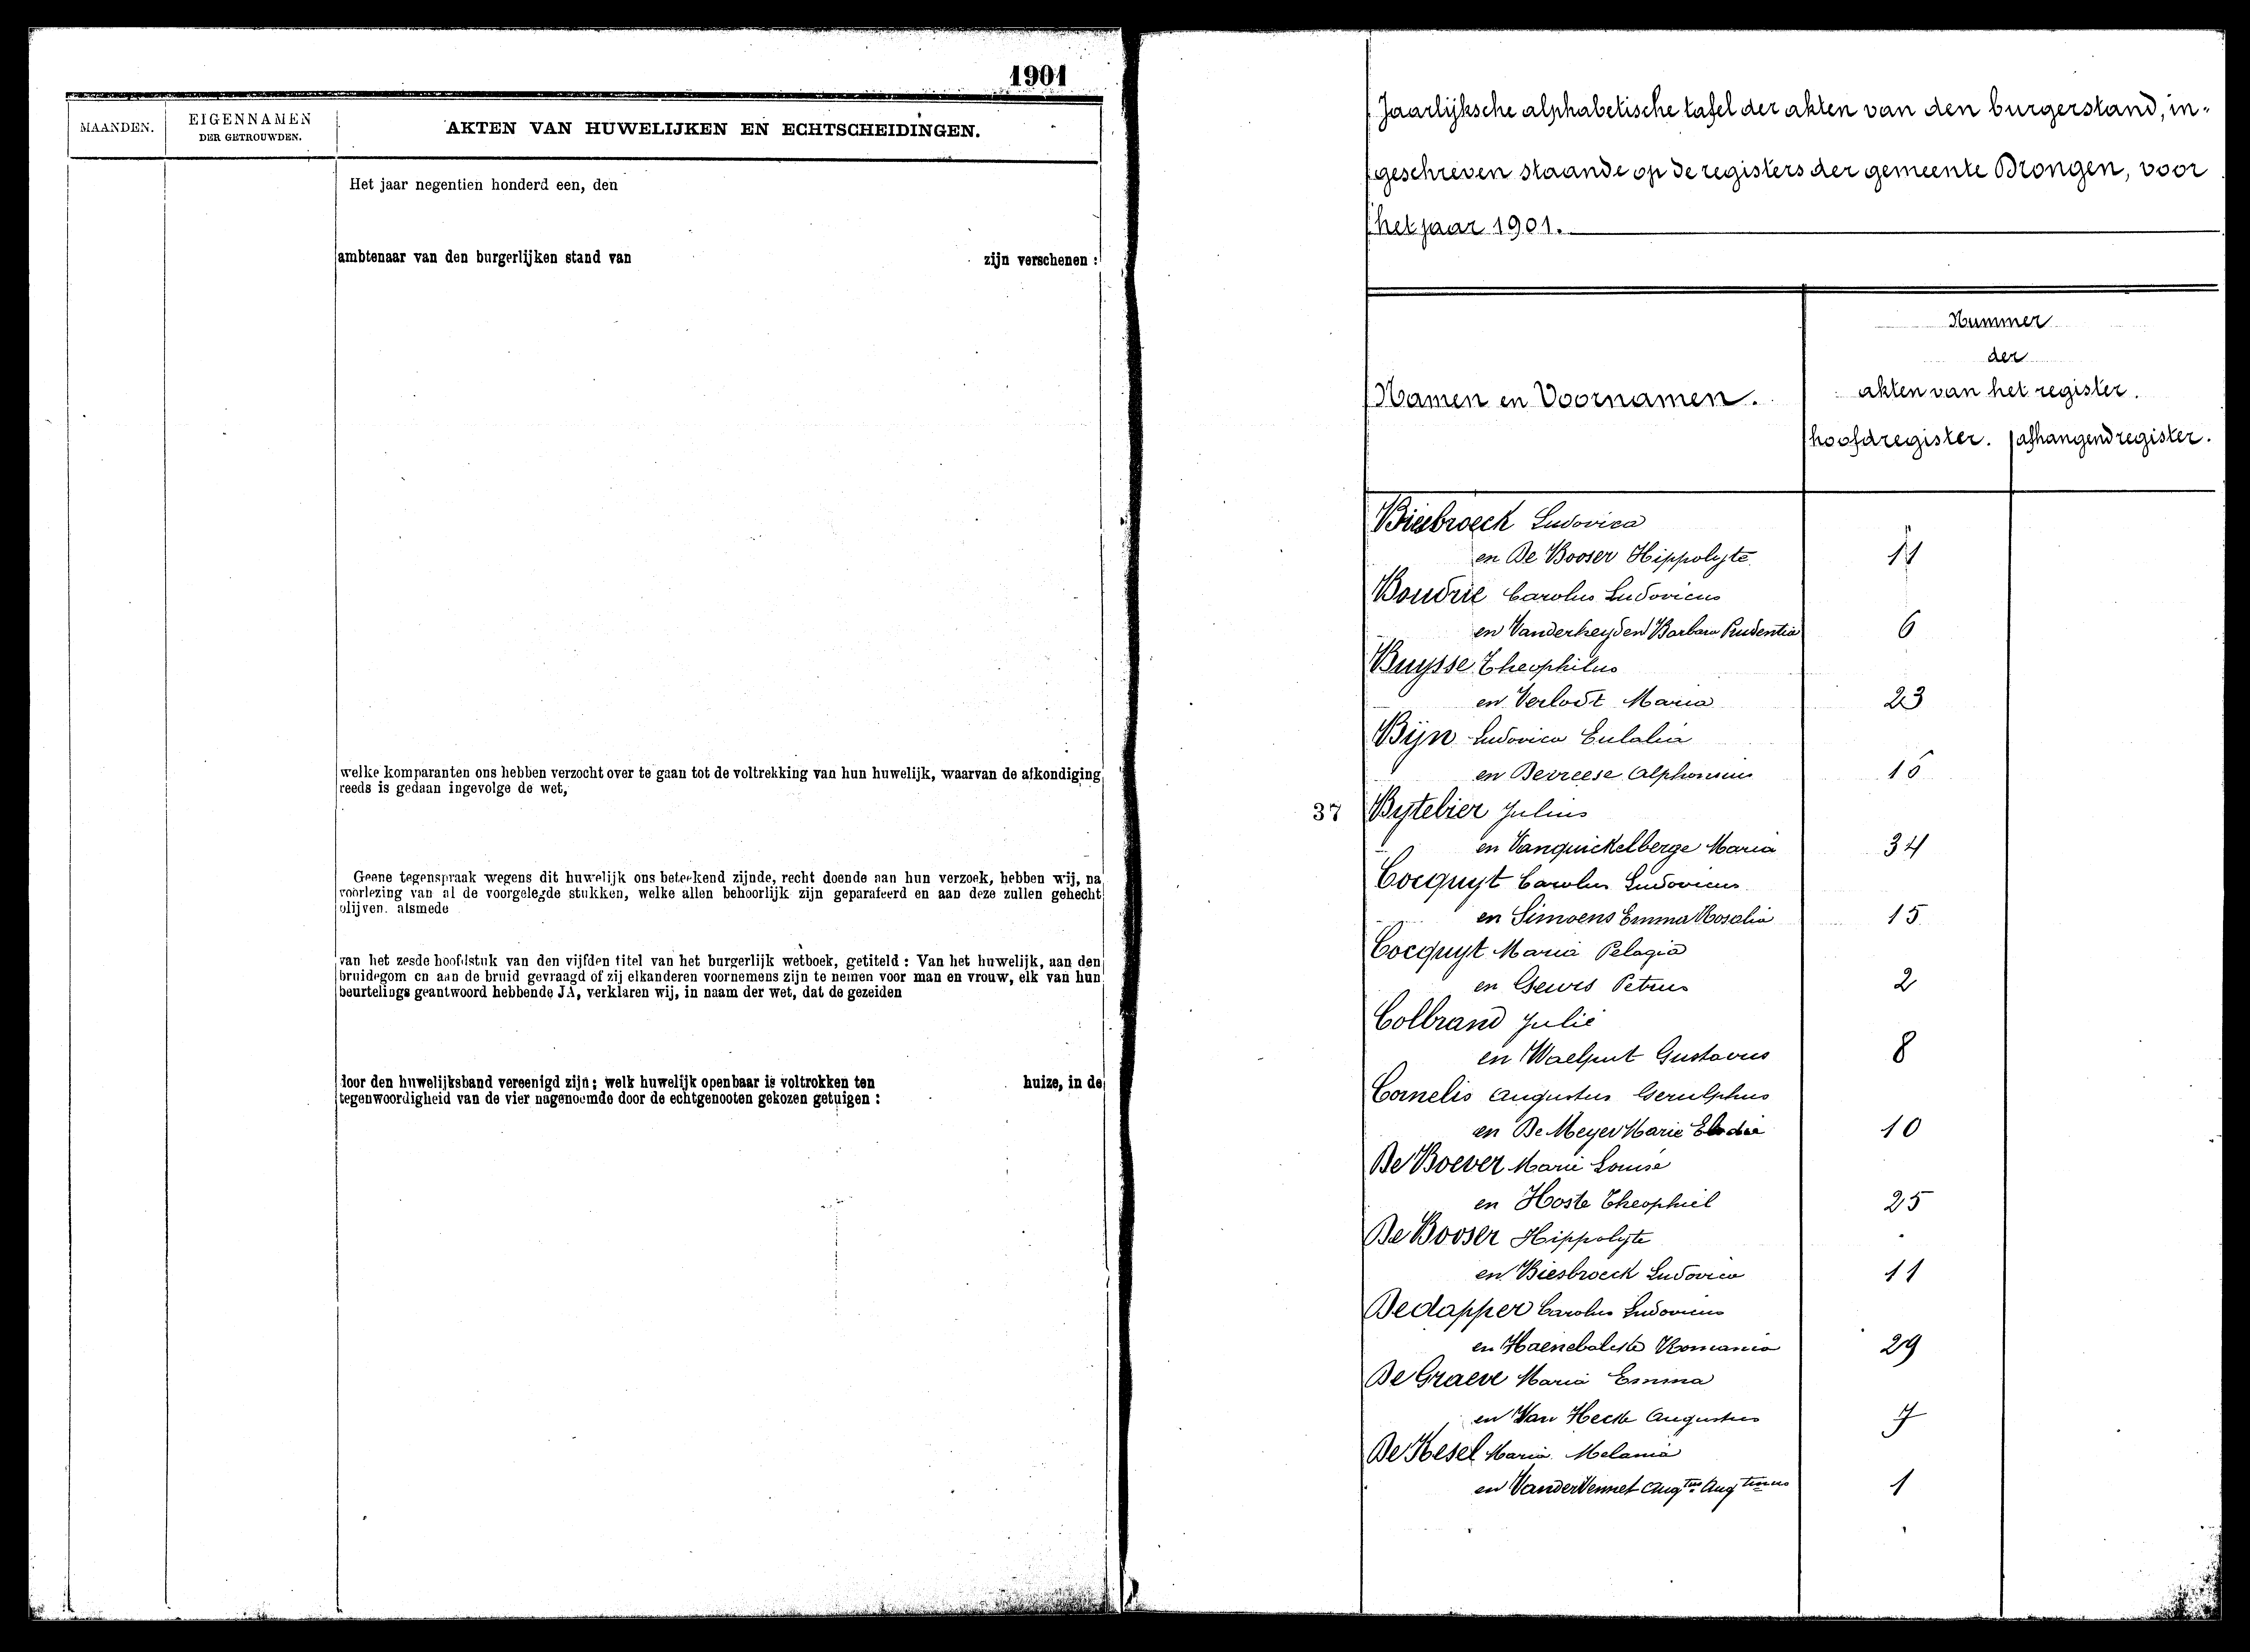 1901
MAANDEN.
EIGENNAMEN
DER GETROUWDEN.
AKTEN VAN HUWELIJKEN EN ECHTSCHEIDINGEN.
Het jaar negentien honderd een, den
ambtenaar van den burgerlijken stand van zijn verschenen :
welke komparanten ons hebben verzocht over te gaan tot de voltrekking van hun huwelijk, waarvan de afkondiging
reeds is gedaan ingevolge de wet,
Geene tegenspraak wegens dit huwelijk ons beteekend zijnde, recht doende aan hun verzoek, hebben wij, na
voorlezing van al de voorgelegde stukken, welke allen behoorlijk zijn geparafeerd en aan deze zullen gehecht
blijven. alsmede
van het zesde hoofdstuk van den vijfden titel van het burgerlijk wetboek, getiteld : Van het huwelijk, aan den
bruidegom en aan de bruid gevraagd of zij elkanderen voornemens zijn te nemen voor man en vrouw, elk van hun
beurtelings geantwoord hebbende JA, verklaren wij, in naam der wet, dat de gezeiden
door den huwelijksband vereenigd zijn ; welk huwelijk openbaar is voltrokken ten huize, in de
tegenwoordigheid van de vier nagenoemde door de echtgenooten gekozen getuigen :
Jaarlijksche alphabetische tafel der akten van den burgerstand, in-
geschreven staande op de registers der gemeente Drongen, voor
het jaar 1901.
Nummer
der
akten van het register.
Namen en Voornamen.
hoofdregister. afhangend register.
Biesbroeck Ludovica
en De Booser Hippolyte 11
Boudrie Carolus Ludovicus
en Vanderheyden Barbara Prudentia 6
Buysse Theophilus
en Verlodt Maria 23
Bijn Ludovica Eulalia
en Devreese Alphonsius 16
37 Bytebier Julius
en Vanquickelberge Maria 34
Cocquyt Carolus Ludovicus
en Simoens Emma Rosalia 15
Cocquyt Maria Pelagia
en Gevers Petrus 2
Colbrand Julie
en Waelput Gustavus 8
Cornelis Augustus Gerulphus
en De Meyer Marie Elodie 10
De Boever Marie Louise
en Hoste Theophiel 25
De Booser Hippolyte
en Biesbroeck Ludovica 11
Dedapper Carolus Ludovicus
en Haenebalcke Romania 29
De Graeve Maria Emma
en Van Hecke Augustus 7
De Kesel Maria Melania
en Vander Vennet Aug<sup>tus</sup> Aug<sup>tinus</sup> 1